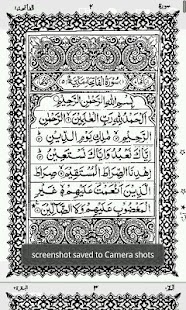 ٢
سُوْرَةُ الْفَاتِحَةِ مَكِّيَّةٌ
بِسْمِ اللّٰهِ الرَّحْمٰنِ الرَّحِيْمِ
اَلْحَمْدُ لِلّٰهِ رَبِّ الْعٰلَمِيْنَ الرَّحْمٰنِ
الرَّحِيْمِ مٰلِكِ يَوْمِ الدِّيْنِ
اِيَّاكَ نَعْبُدُ وَاِيَّاكَ نَسْتَعِيْنُ
اِهْدِنَا الصِّرَاطَ الْمُسْتَقِيْمَ صِرَاطَ
الَّذِيْنَ اَنْعَمْتَ عَلَيْهِمْ غَيْرِ
الْمَغْضُوْبِ عَلَيْهِمْ وَلَا الضَّآلِّيْنَ
screenshot saved to Camera shots
٣